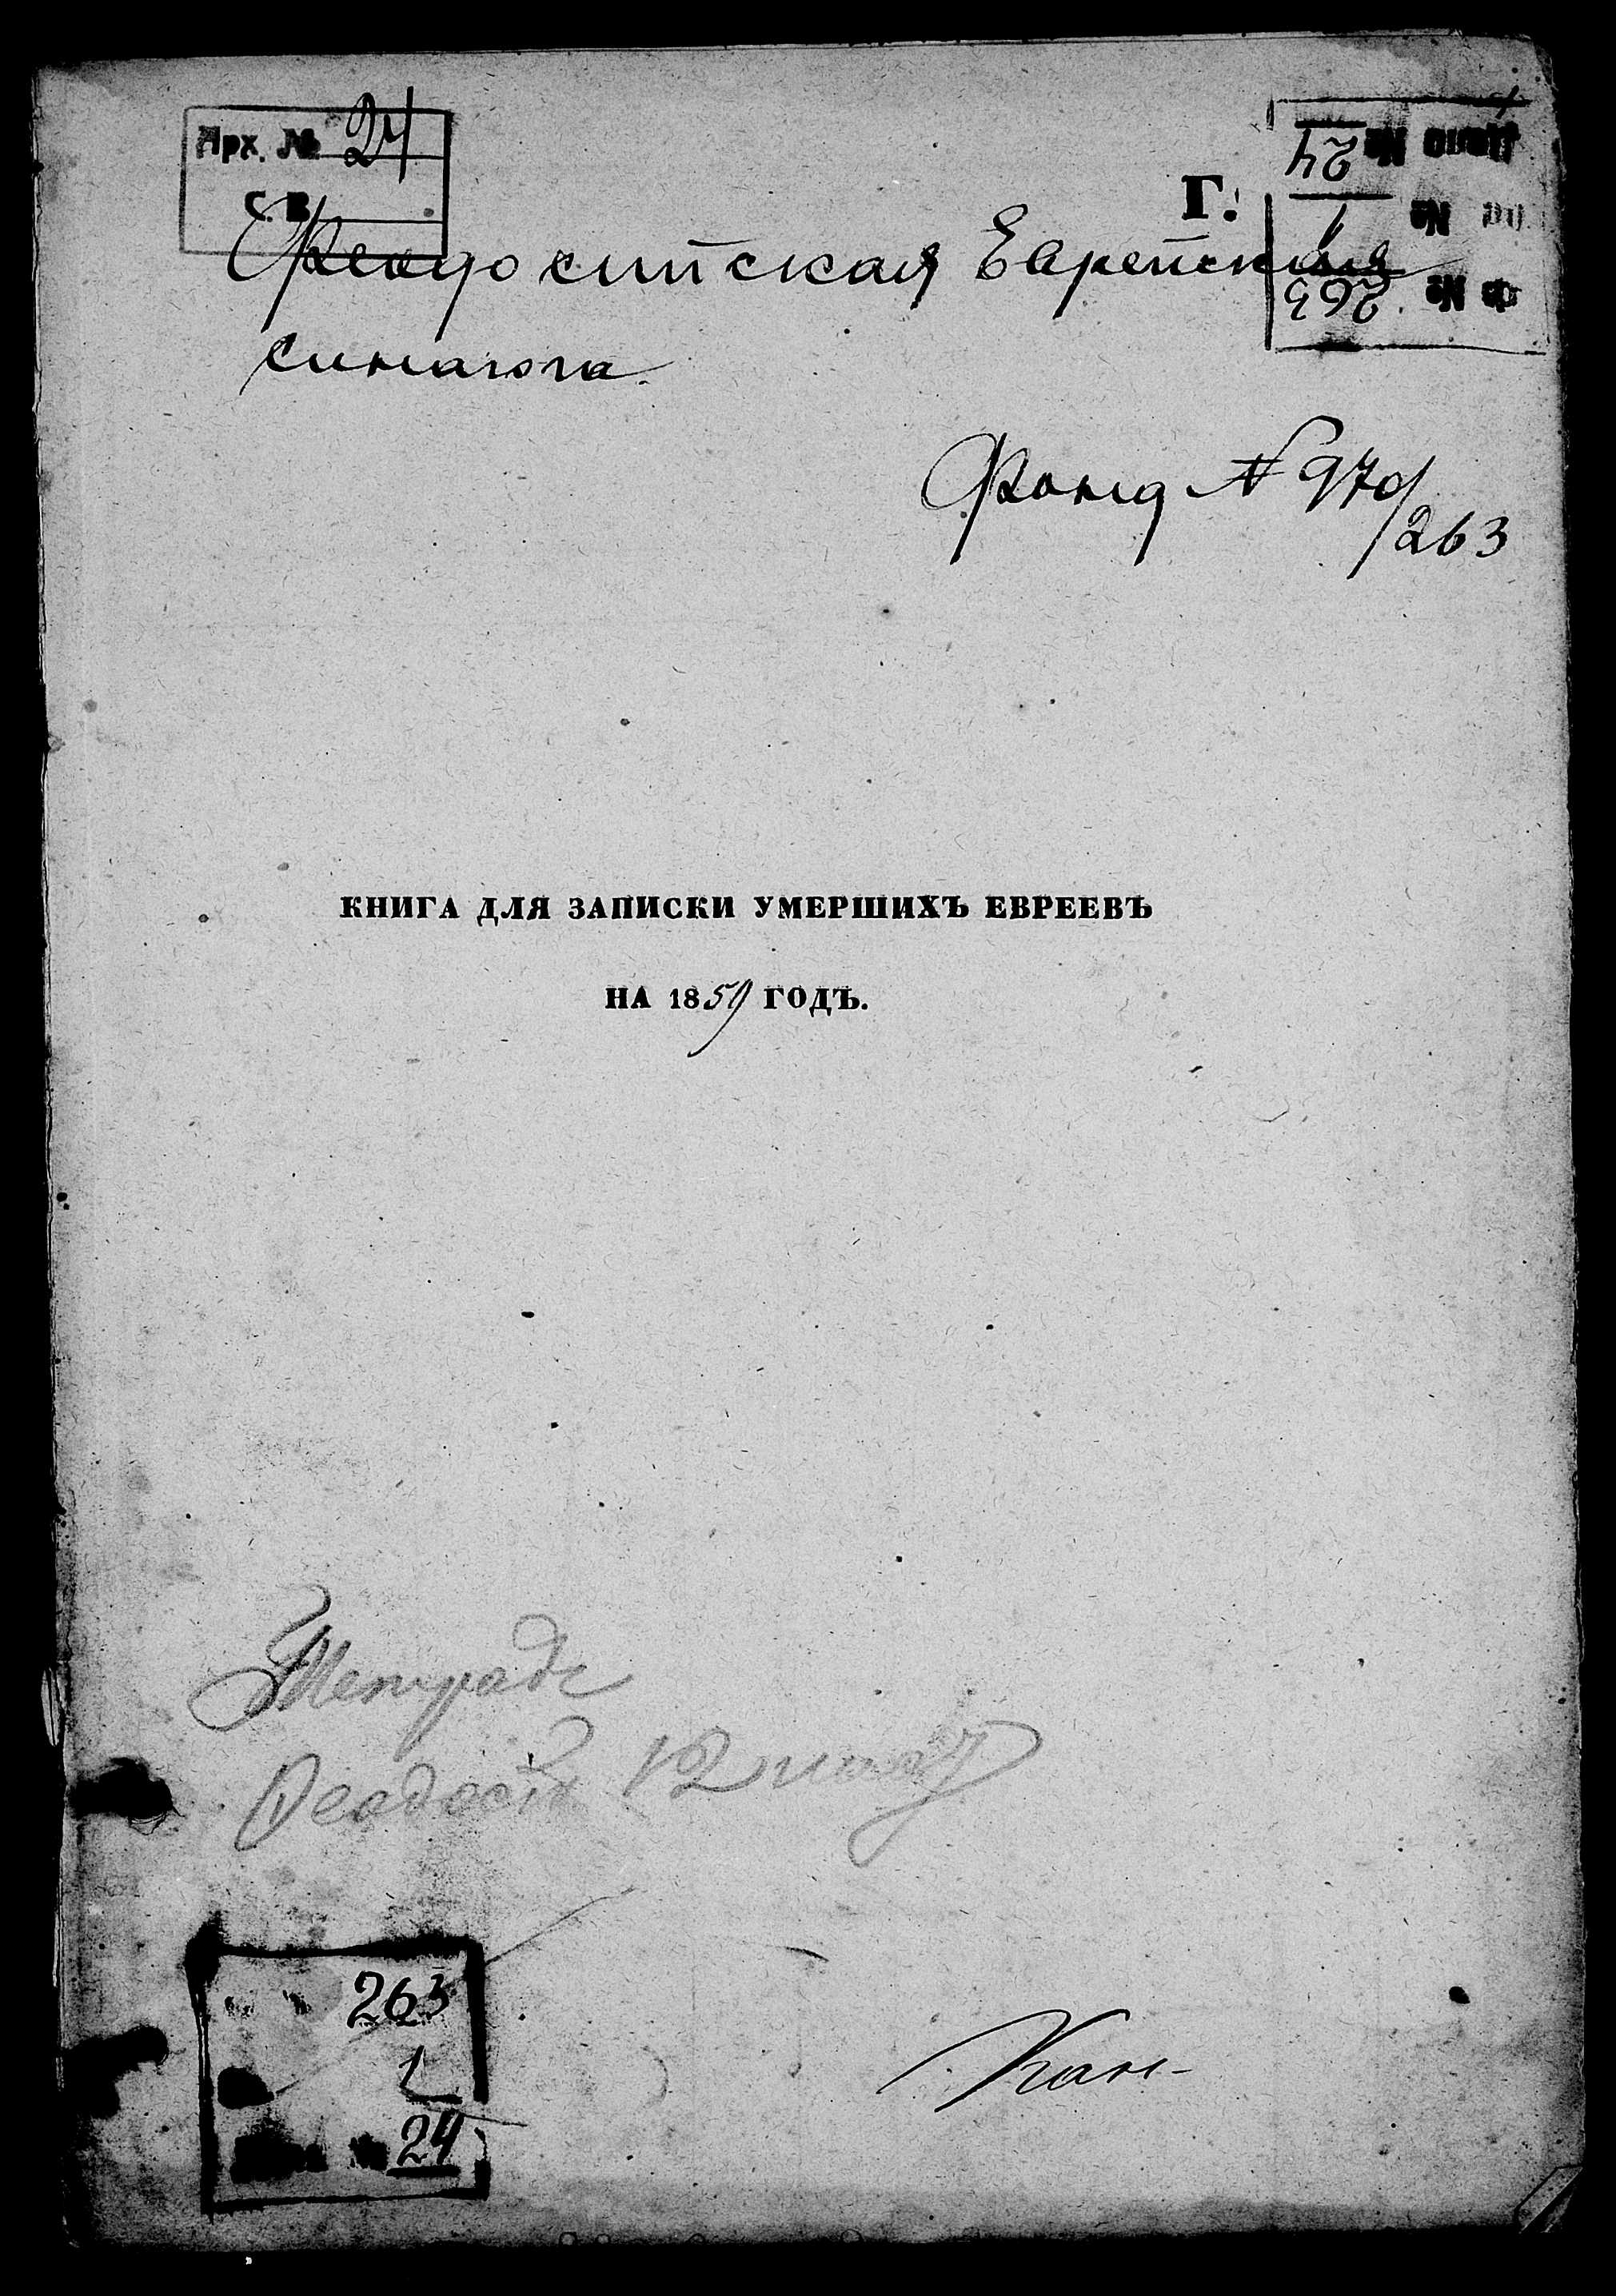 Арх. № 24
С. В.
Дело № 24
оп. № 1
Ф № 263
Г.
Феодосийская Еврейская
синагога.
Фонд № 970/
/263
КНИГА ДЛЯ ЗАПИСКИ УМЕРШИХЪ ЕВРЕЕВЪ
НА 1859 ГОДЪ.
Тетрадь
Кан-
263
1
24